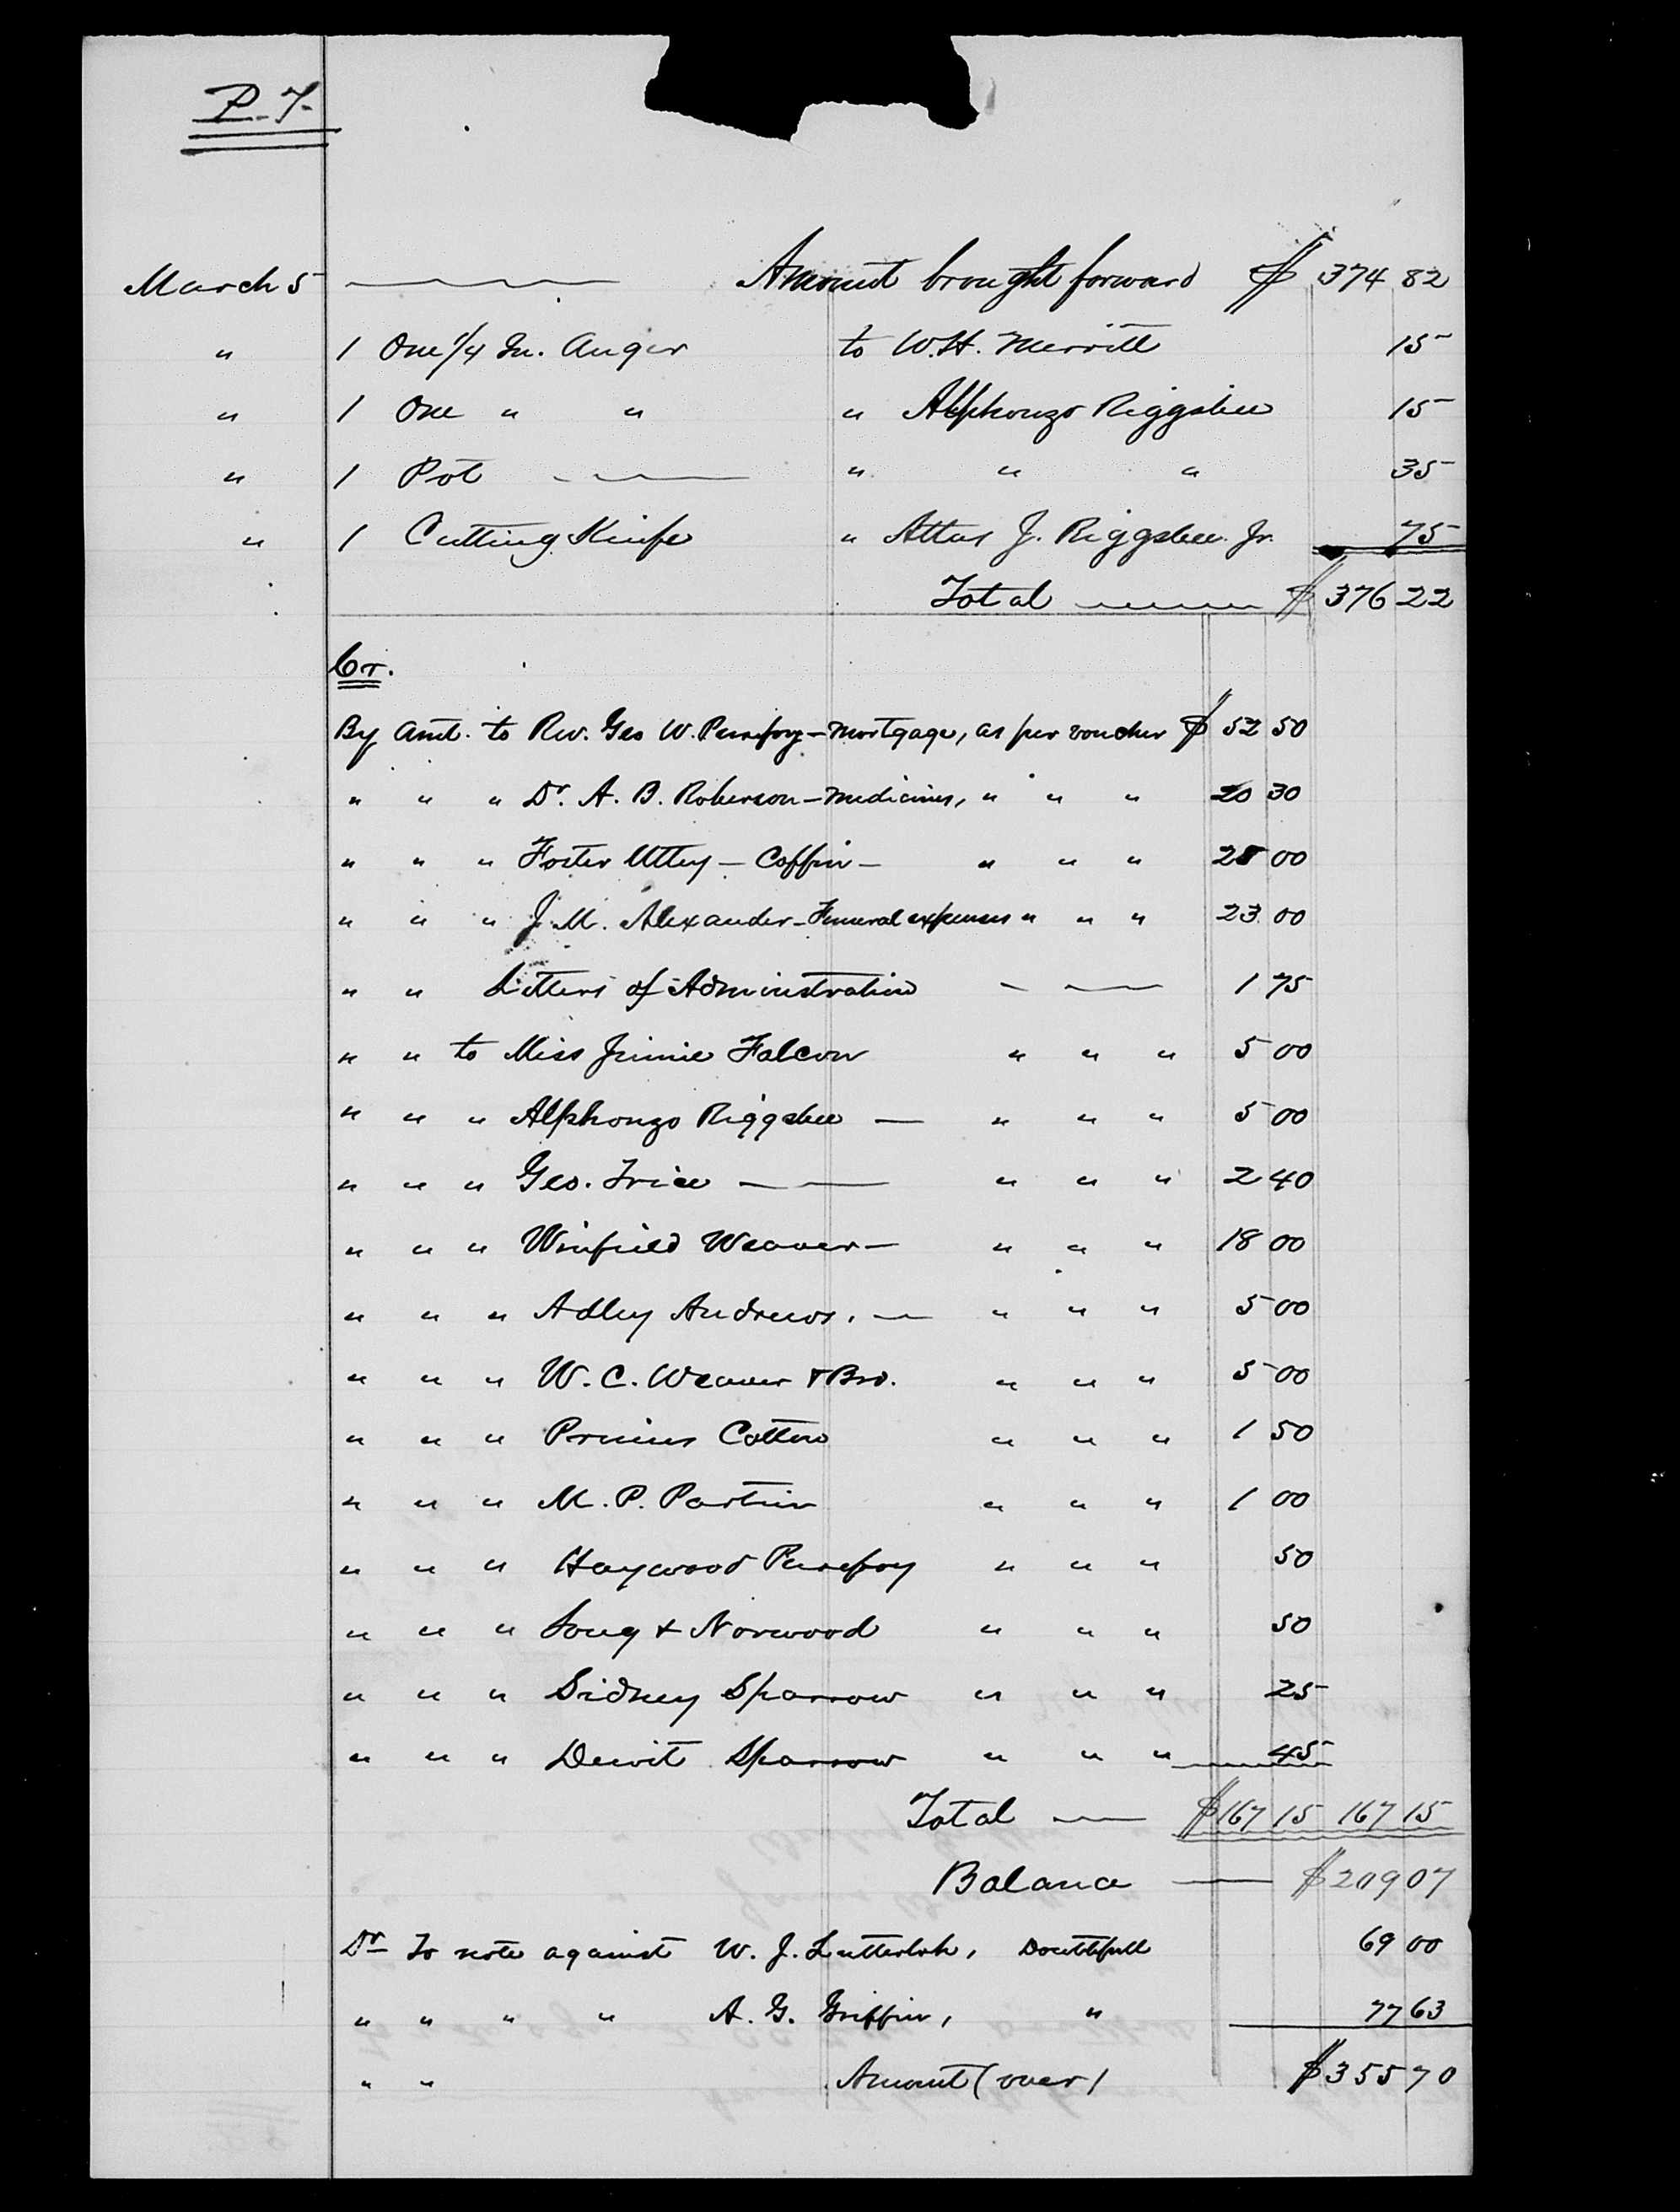 P. 7.
March 5 Amount brought forward $ 374 82
" 1 One 1/4 In. Auger to W. H. Merritt 15
" 1 One " " " Alphonzo Riggsbee 15
" 1 Pot " " " 35
" 1 Cutting Knife " Attas J. Riggsbee Jr. 75
Total $ 376 22
Cr.
By Amt. to Rev. Geo W. Purefoy - Mortgage, as per voucher $ 52 50
" " " Dr. A. B. Roberson - Medicines, " " " 20 30
" " " Foster Utley - Coffin - " " " 25 00
" " " J. M. Alexander - Funeral expenses " " " 23 00
" " Letters of Adminstration 1 75
" " to Miss Jinnie Falcon " " " 5 00
" " " Alphonzo Riggsbee " " " 5 00
" " " Geo. Trice " " " 2 40
" " " Winfield Weaver " " " 18 00
" " " Adley Andrews. " " " 5 00
" " " W. C. Weaver & Bro. " " " 5 00
" " " Primus Cotton " " " 1 50
" " " M. P. Partin " " " 1 00
" " " Haywood Purefoy " " " 50
" " " Long & Norwood " " " 50
" " " Sidney Sparrow " " " 25
" " " Dewit Sparrow " " " 45
Total $167 15 167 15
Balance $209 07
Dr To note against W. J. Lutterloh, Doubtfull 69 00
" " " " A. G. Griffin, " 77 63
" " Amount (over) $355 70